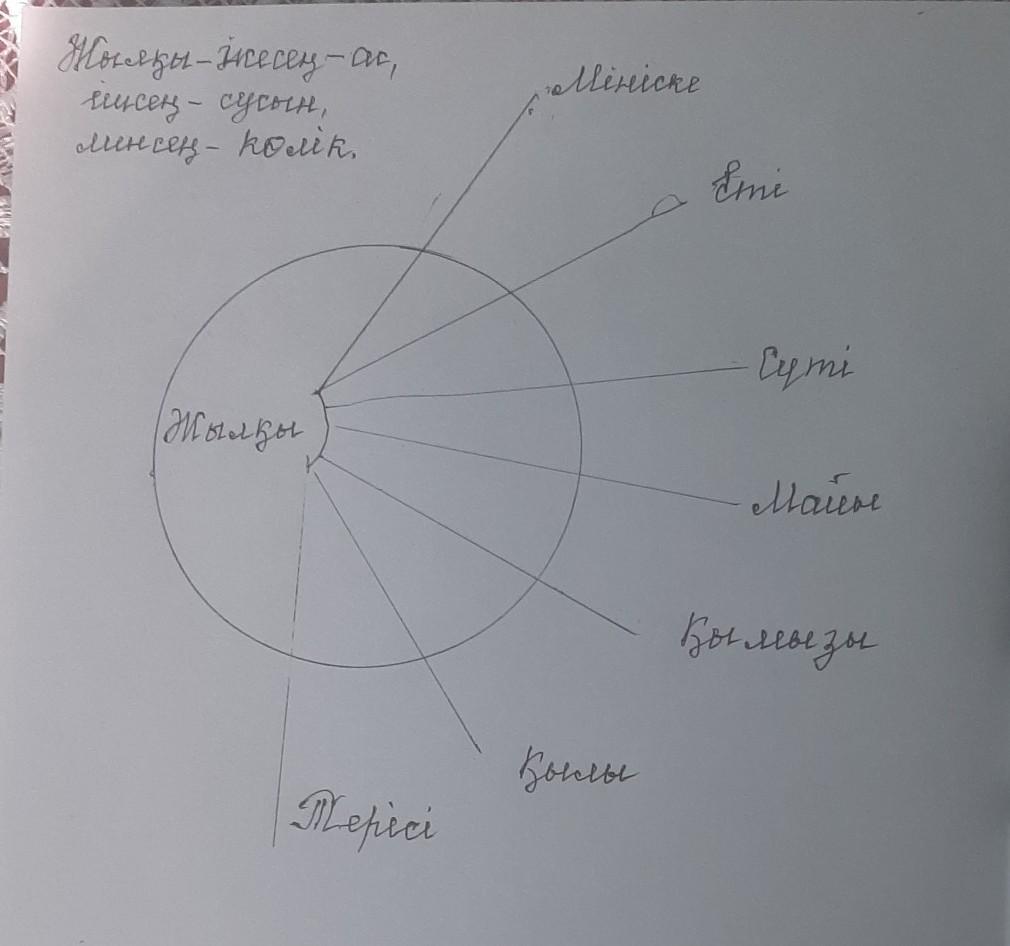 Жылқы-жесең-ас,
ішсең- сусын,
минсең- көлік.
Мініске
Еті
Сүті
Жылқы
Майы
Қымызы
Қылы
Терісі